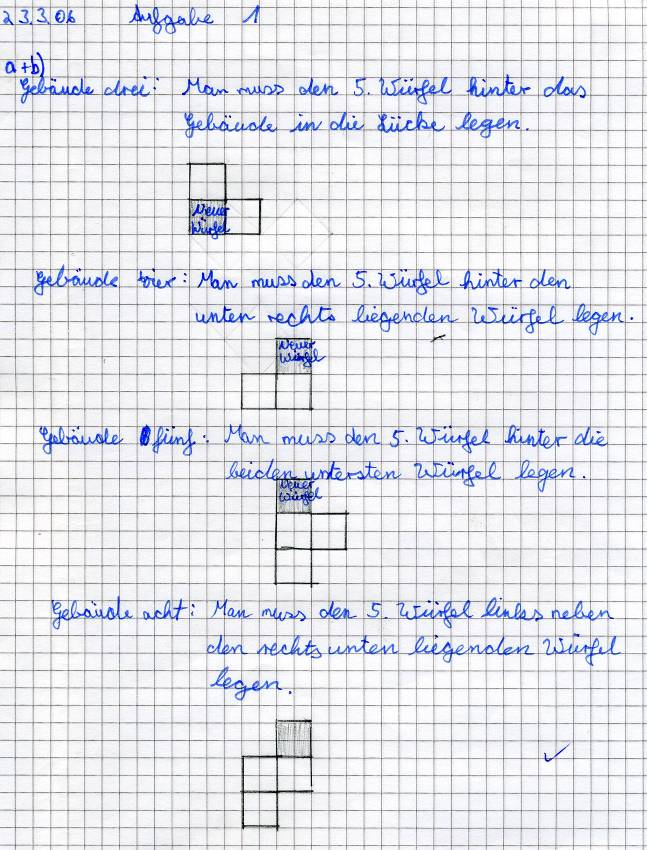 23.3.06 Aufgabe 1
a+b)
Gebäude drei: Man muss den 5. Würfel hinter das
Gebäude in die Lücke legen.
Neuer
Würfel
Gebäude vier: Man muss den 5. Würfel hinter den
unten rechts liegenden Würfel legen.
Neuer
Würfel
Gebäude fünf: Man muss den 5. Würfel hinter die
beiden untersten Würfel legen.
Neuer
Würfel
Gebäude acht: Man muss den 5. Würfel links neben
den rechts unten liegenden Würfel
legen.